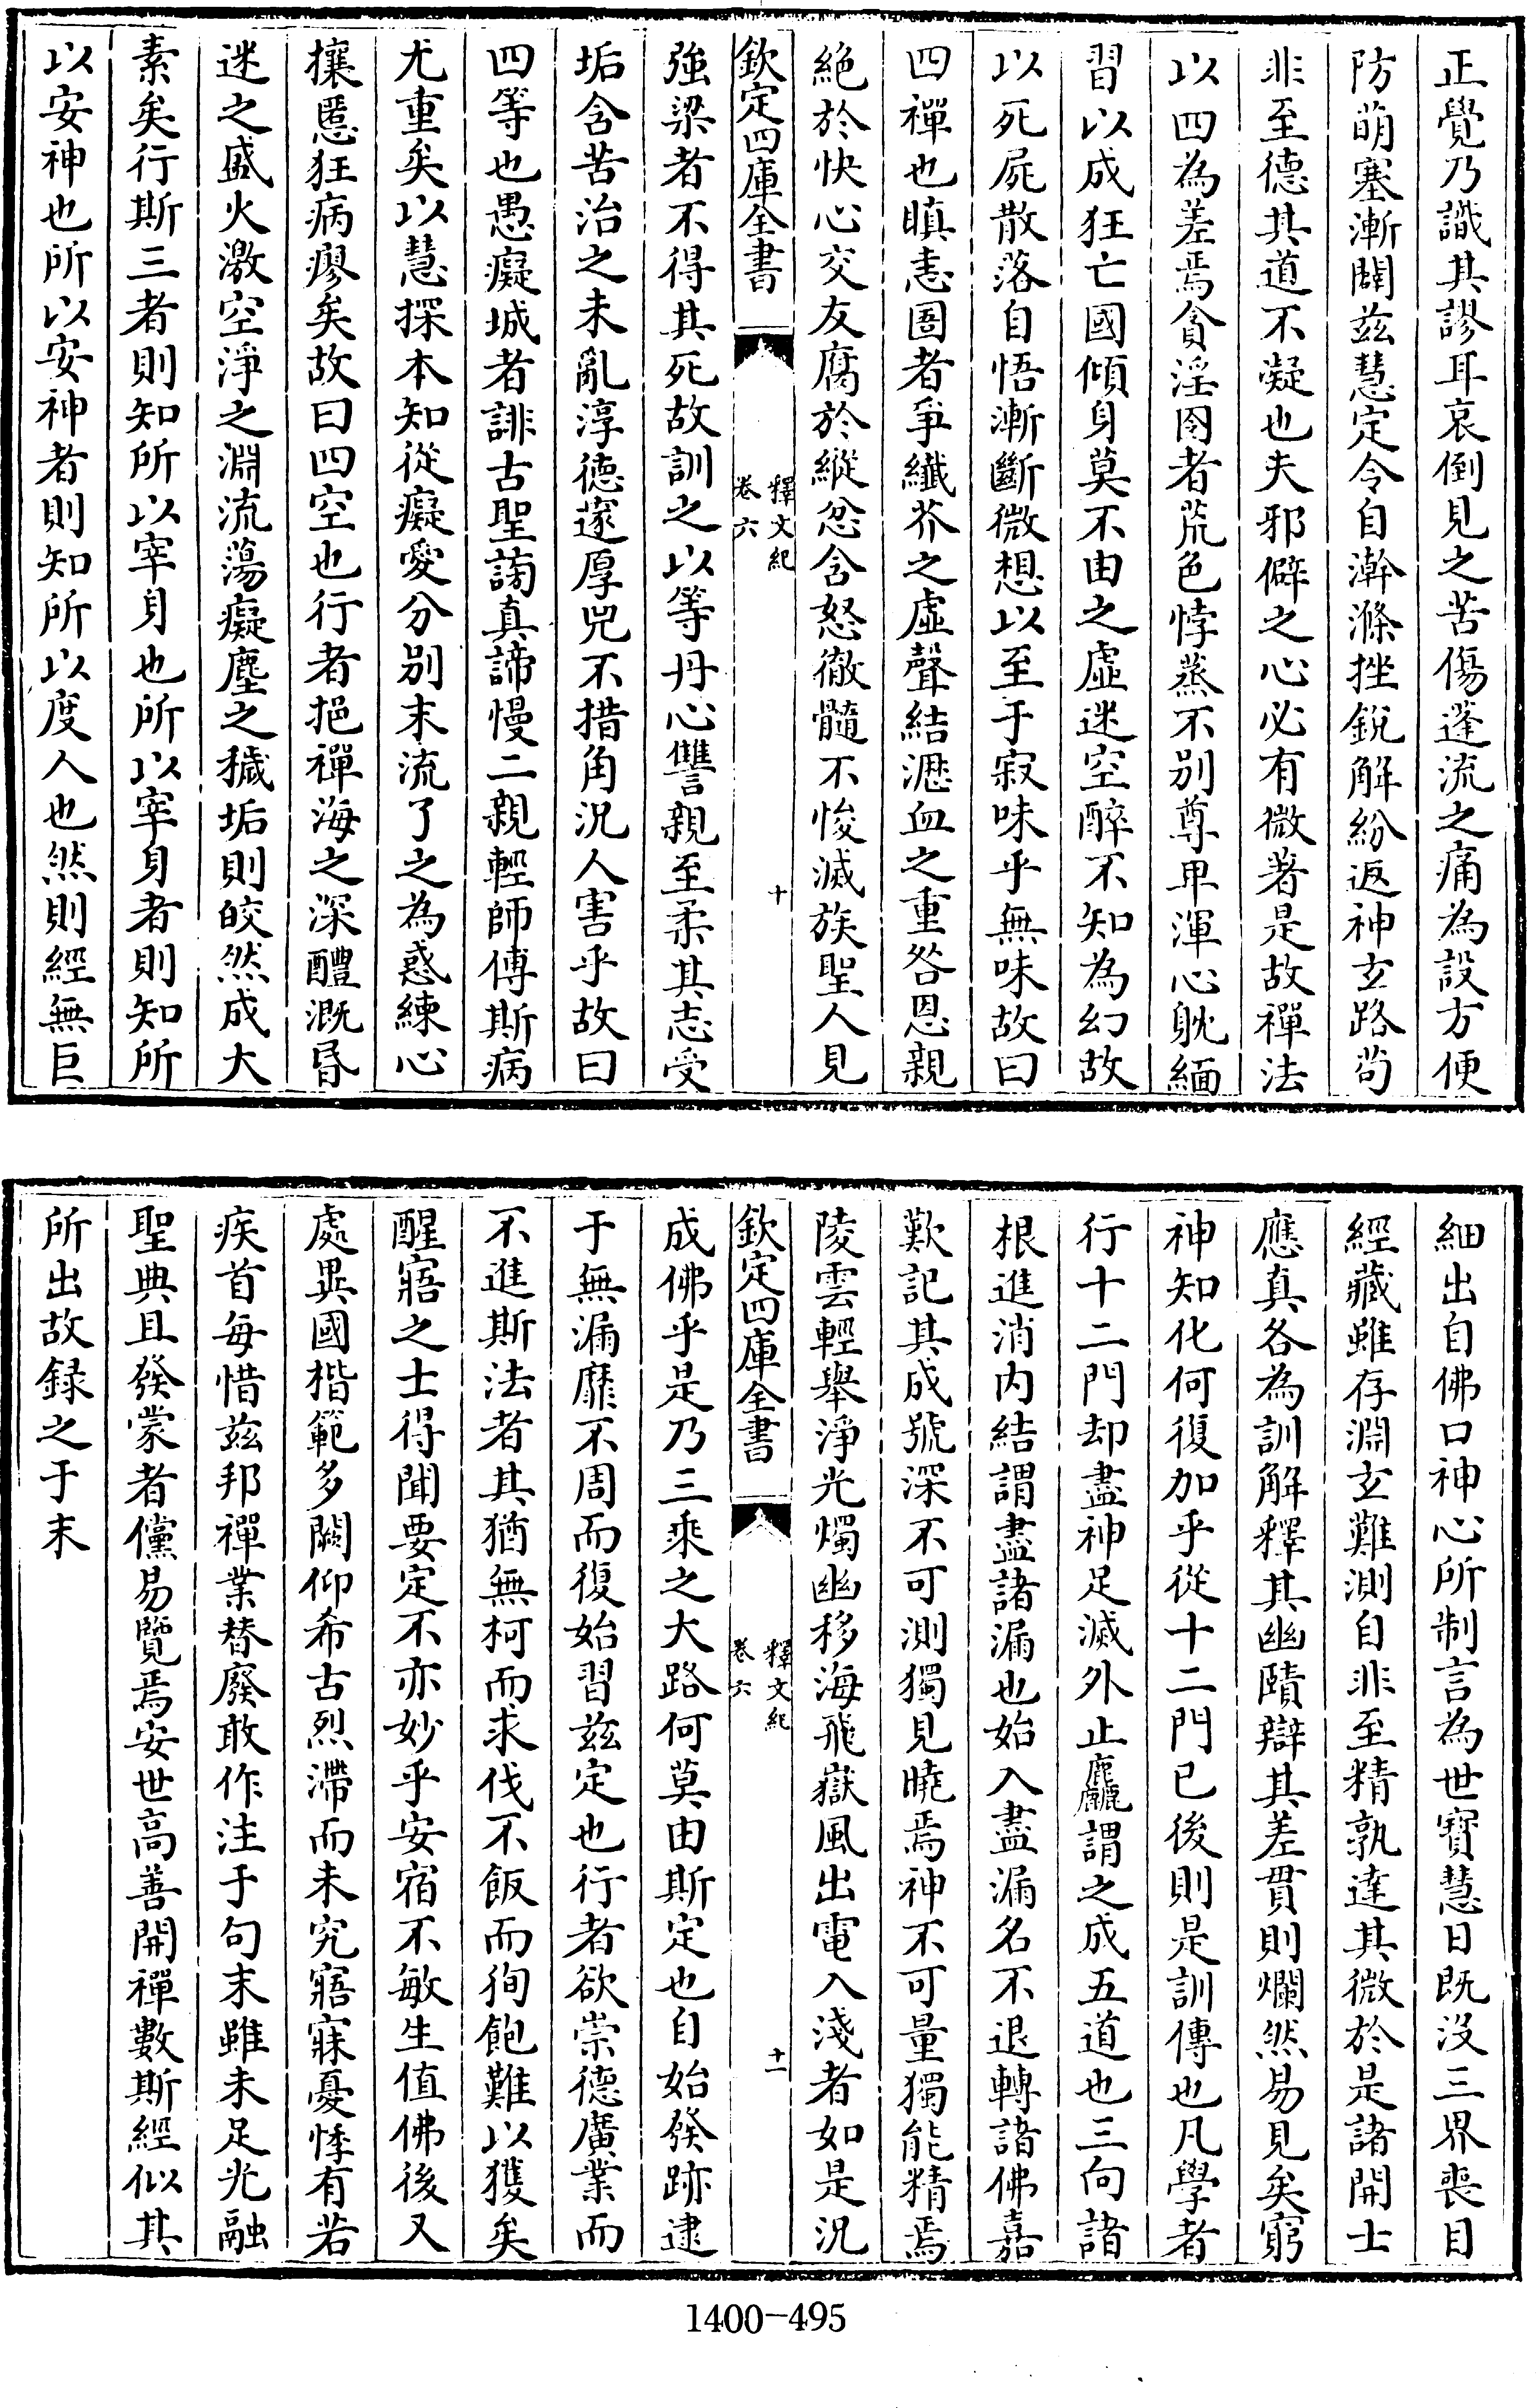 正覺乃識其謬耳哀倒見之苦傷蓬流之痛為設方便
防萌塞漸闢茲慧定令自澣滌挫銳解紛返神玄路茍
非至德其道不凝也夫邪僻之心必有微著是故禪法
以四為差焉貪淫囹者荒色悖蒸不別尊卑渾心躭緬
習以成狂亡國傾身莫不由之虛迷空醉不知為幻故
以死屍散落自悟漸斷微想以至于寂味乎無味故曰
四禪也瞋恚圄者爭纖芥之虛聲結瀝血之重咎恩親
絶於快心交友腐於縱忿含怒徹髓不悛滅族聖人見
欽定四庫全書
釋文紀
卷六
十
強梁者不得其死故訓之以等丹心讐親至柔其志受
垢含苦治之未亂淳德邃厚兕不措角況人害乎故曰
四等也愚癡城者誹古聖謗真諦慢二親輕師傅斯病
尤重矣以慧探本知從癡愛分別末流了之為惑練心
攘慝狂病瘳矣故曰四空也行者挹禪海之深醴溉昏
迷之盛火激空淨之淵流蕩癡塵之穢垢則皎然成大
素矣行斯三者則知所以宰身也所以宰身者則知所
以安神也所以安神者則知所以度人也然則經無巨
細出自佛口神心所制言為世寳慧日既沒三界喪目
經藏雖存淵玄難測自非至精孰達其微於是諸開士
應真各為訓解釋其幽賾辯其差貫則爛然易見矣窮
神知化何復加乎從十二門已後則是訓傳也凡學者
行十二門却盡神足滅外止麤謂之成五道也三向諸
根進消内結謂盡諸漏也始入盡漏名不退轉諸佛嘉
歎記其成號深不可測獨見曉焉神不可量獨能精焉
陵雲輕舉淨光燭幽移海飛嶽風出電入淺者如是況
欽定四庫全書
釋文紀
卷六
十一
成佛乎是乃三乘之大路何莫由斯定也自始發跡逮
于無漏靡不周而復始習茲定也行者欲崇德廣業而
不進斯法者其猶無柯而求伐不飯而徇飽難以獲矣
醒寤之士得聞要定不亦妙乎安宿不敏生值佛後又
處異國楷範多闕仰希古烈滯而未究寤寐憂悸有若
疾首每惜茲邦禪業替廢敢作注于句末雖未足光融
聖典且發蒙者儻易覽焉安世高善開禪數斯經似其
所出故録之于末
1400-495